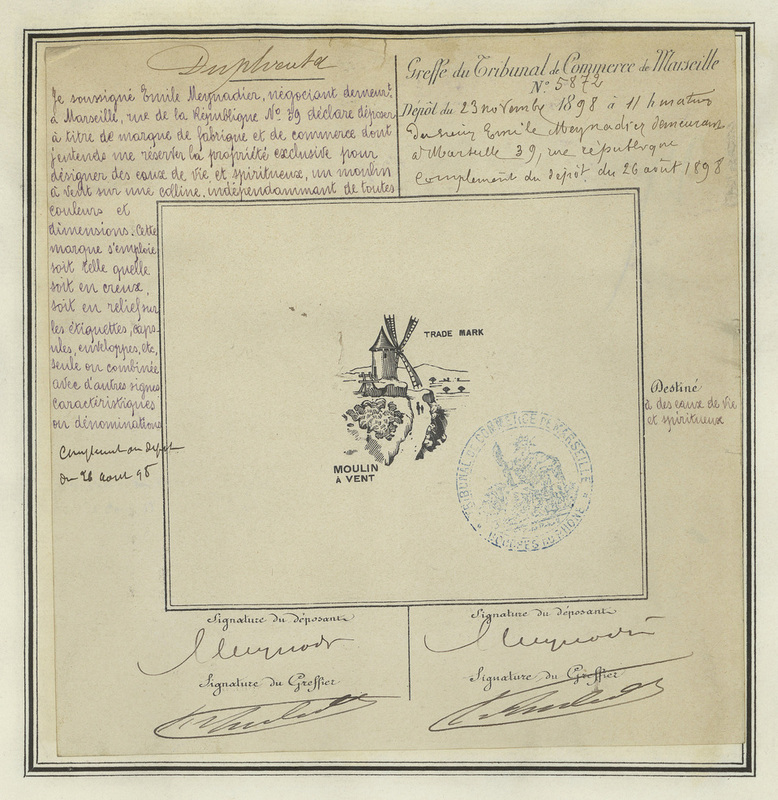 Duplicata
Je soussigné Emile Meynadier, négociant demeurt
à Marseille, rue de la République No 39 déclare déposer
à titre de marque de fabrique et de commerce dont
j'entends me réserver la propriété exclusive pour
désigner des eaux de vie et spiritueux, un moulin
à vent sur une colline, indépendammant de toutes
couleurs et
dimensions. Cette
marque s'emploie
soit telle quelle
soit en creux,
soit en relief sur
les étiquettes, caps-
ules, enveloppes, etc,
seule ou combinée
avec d'autres signes
caractéristiques
ou dénominations
Complément au dépot
du 26 aout 98
Greffe du Tribunal de Commerce de Marseille
No 5872
Dépôt du 23 novembre 1898 à 11 h matin
Du sieur Emile Meynadier demeurant
à Marseille 39, rue république
Complément du dépôt du 26 août 1898
TRADE MARK
MOULIN
À VENT
TRIBUNAL DE COMMERCE DE MARSEILLE
BOUCHES DU RHÔNE
Destiné
à des eaux de vie
et spiritueux
Signature du déposant
E Meynadier
Signature du Greffier
Signature du déposant
E Meynadier
Signature du Greffier